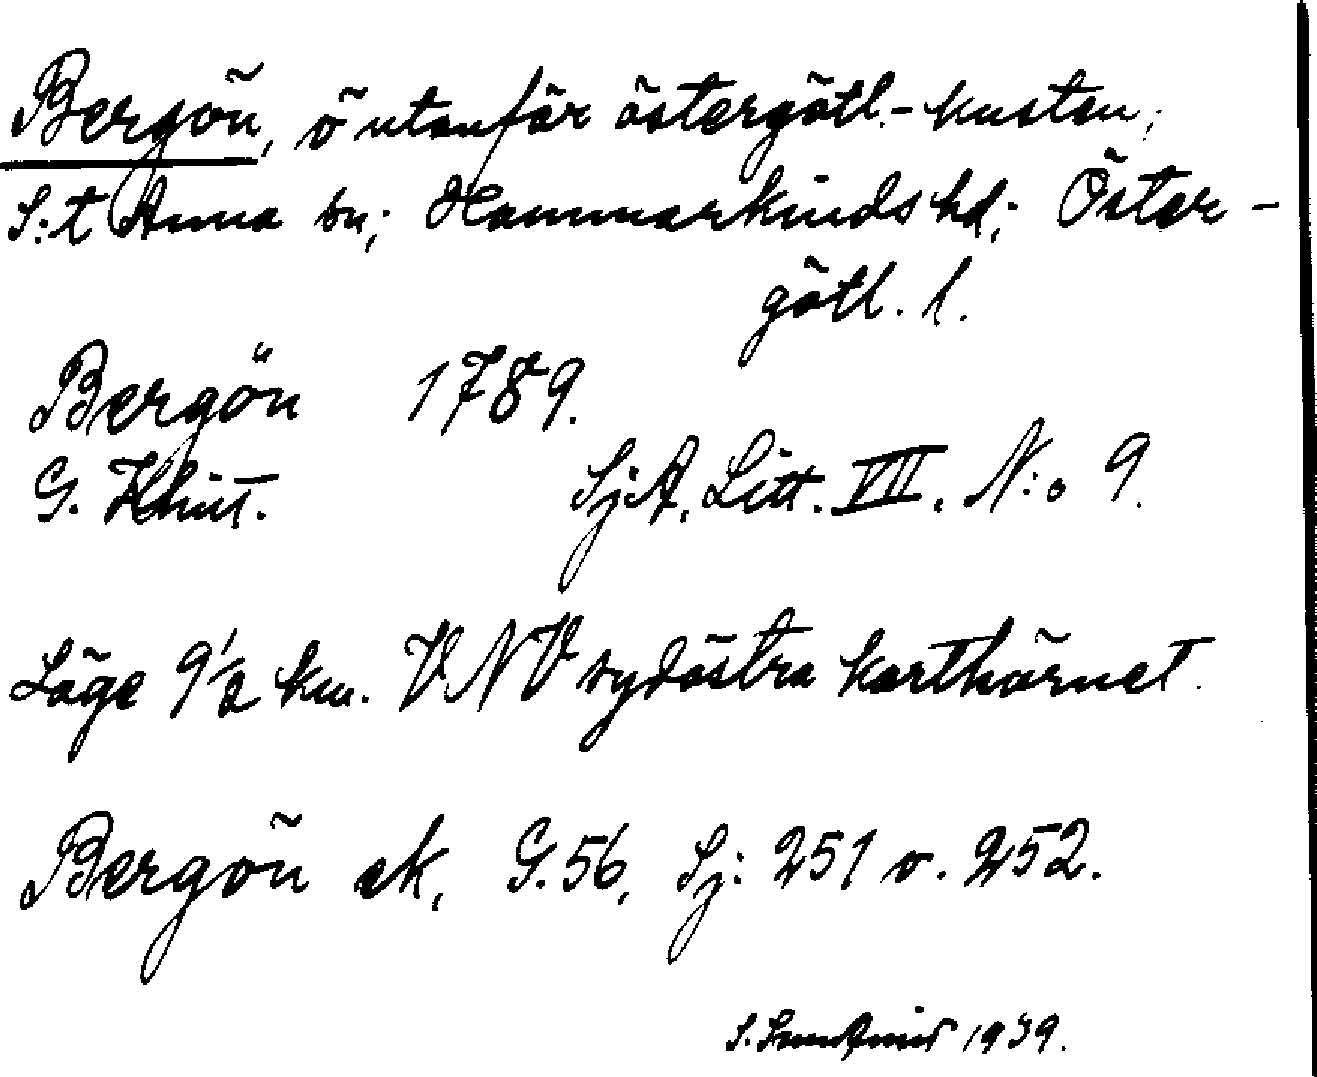 Bergön, ö utanför östergötl.-kusten;
S:t Anna sn; Hammarkinds hd; Öster-
götl. l.
Bergön 1789.
G. Klint. SjA. Litt. VII. N:o 9.
Läge 9 1/2 km. VNV sydöstra karthörnet.
Bergön ek, G.56, Sj: 251 o. 252.
S. 1939.